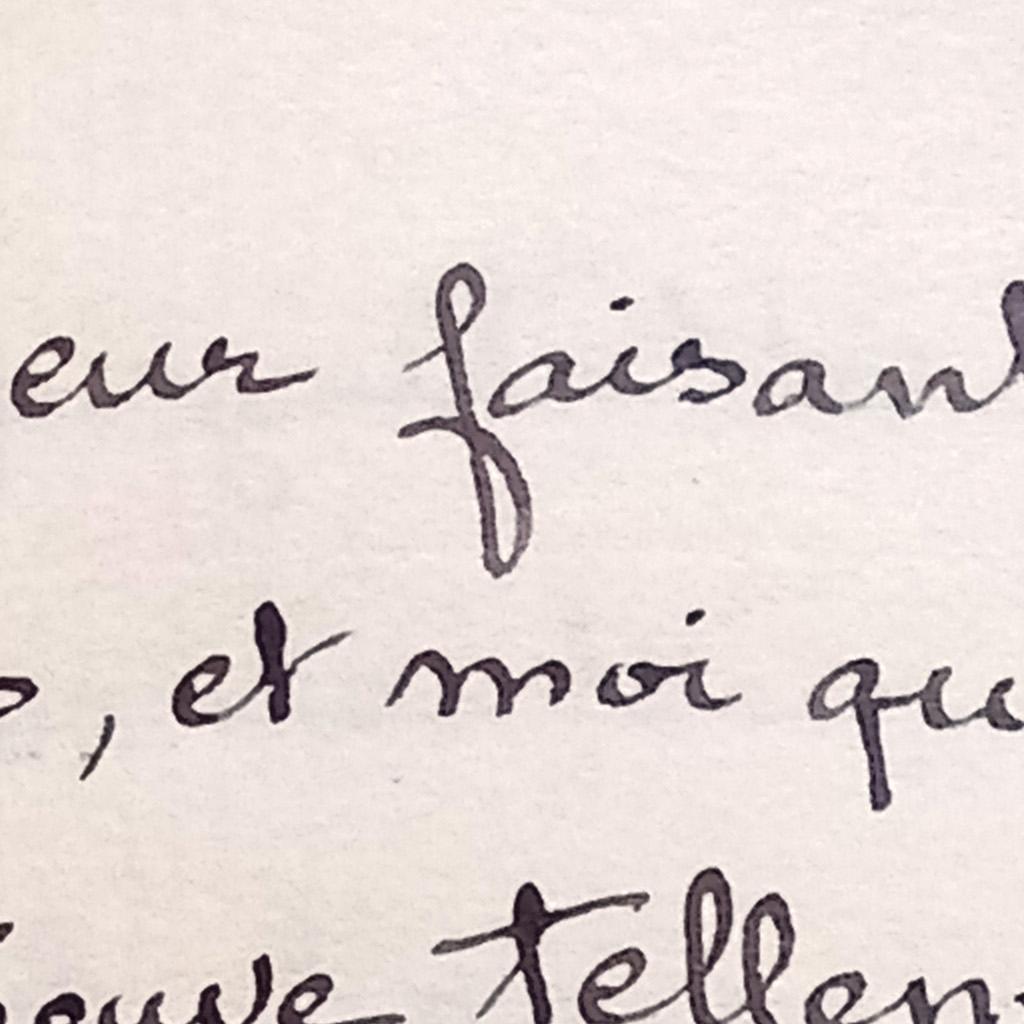 eur faisant
, et moi qu
euve tellem